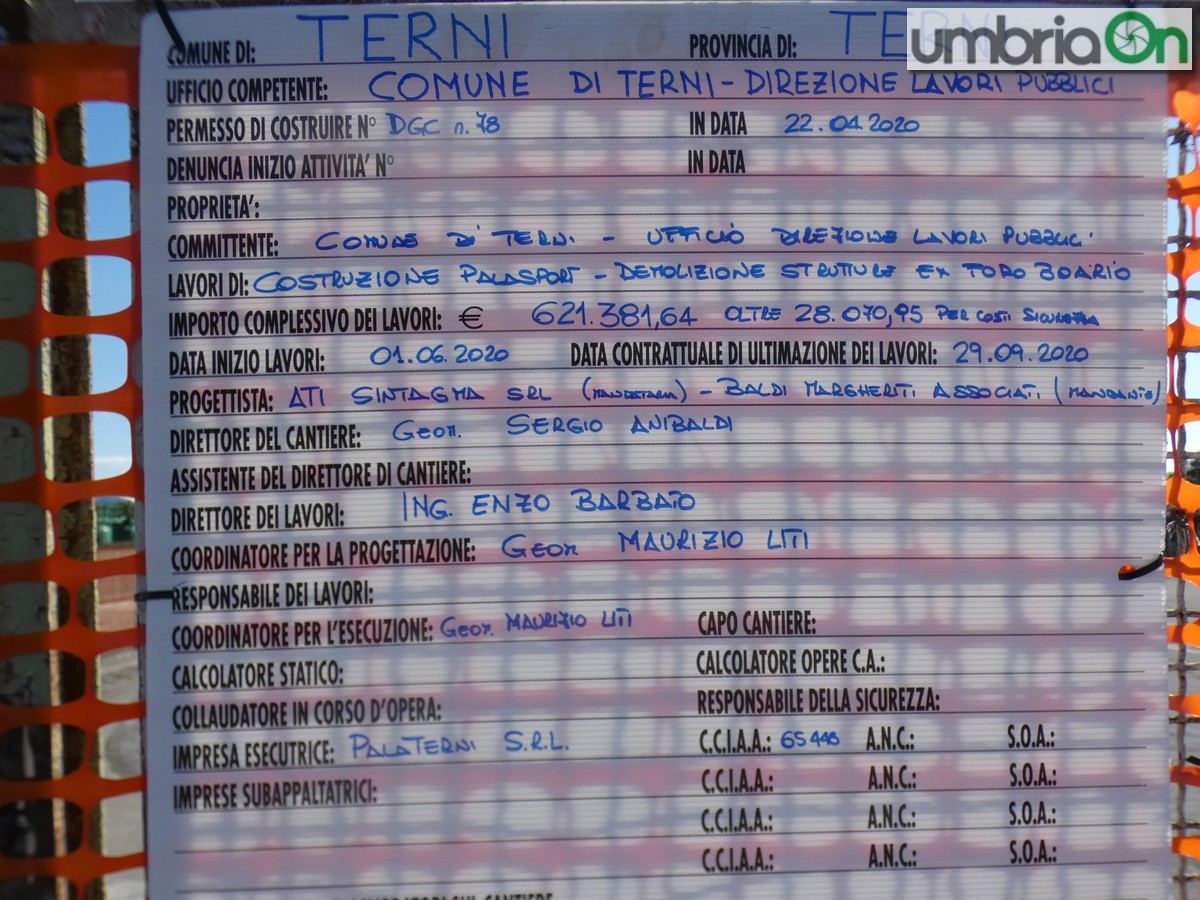 umbriaOn
COMUNE DI: TERNI PROVINCIA DI: TERNI
UFFICIO COMPETENTE: COMUNE DI TERNI - DIREZIONE LAVORI PUBBLICI
PERMESSO DI COSTRUIRE N° DGC n. 78 IN DATA 22.04.2020
DENUNCIA INIZIO ATTIVITA' N° IN DATA
PROPRIETA':
COMMITTENTE: COMUNE DI TERNI - UFFICIO DIREZIONE LAVORI PUBBLICI
LAVORI DI: COSTRUZIONE PALASPORT - DEMOLIZIONE STRUTTURE EX FORO BOARIO
IMPORTO COMPLESSIVO DEI LAVORI: € 621.381,64 OLTRE 28.070,95 PER COSTI SICUREZZA
DATA INIZIO LAVORI: 01.06.2020 DATA CONTRATTUALE DI ULTIMAZIONE DEI LAVORI: 29.09.2020
PROGETTISTA: ATI SINTAGMA SRL (MANDATARIA) - BALDI MARGHERITI ASSOCIATI (MANDANTE)
DIRETTORE DEL CANTIERE: Geom. SERGIO ANIBALDI
ASSISTENTE DEL DIRETTORE DI CANTIERE:
DIRETTORE DEI LAVORI: ING. ENZO BARBATO
COORDINATORE PER LA PROGETTAZIONE: Geom MAURIZIO LITI
RESPONSABILE DEI LAVORI:
COORDINATORE PER L'ESECUZIONE: Geom. MAURIZIO LITI CAPO CANTIERE:
CALCOLATORE STATICO: CALCOLATORE OPERE C.A.:
COLLAUDATORE IN CORSO D'OPERA: RESPONSABILE DELLA SICUREZZA:
IMPRESA ESECUTRICE: PALATERNI S.R.L. C.C.I.A.A.: 65446 A.N.C.: S.O.A.:
IMPRESE SUBAPPALTATRICI: C.C.I.A.A.: A.N.C.: S.O.A.:
C.C.I.A.A.: A.N.C.: S.O.A.:
C.C.I.A.A.: A.N.C.: S.O.A.: